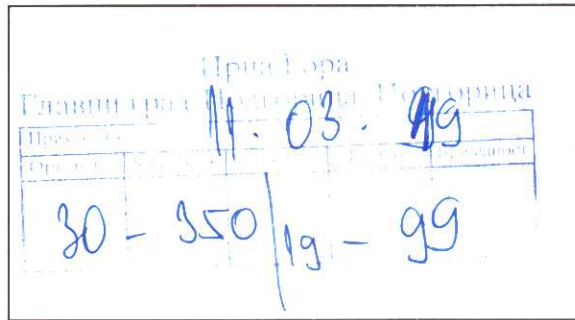 Црна Гора
Главни град Подгорица, Подгорица
11. 03. 19
30 - 350/19 - 99